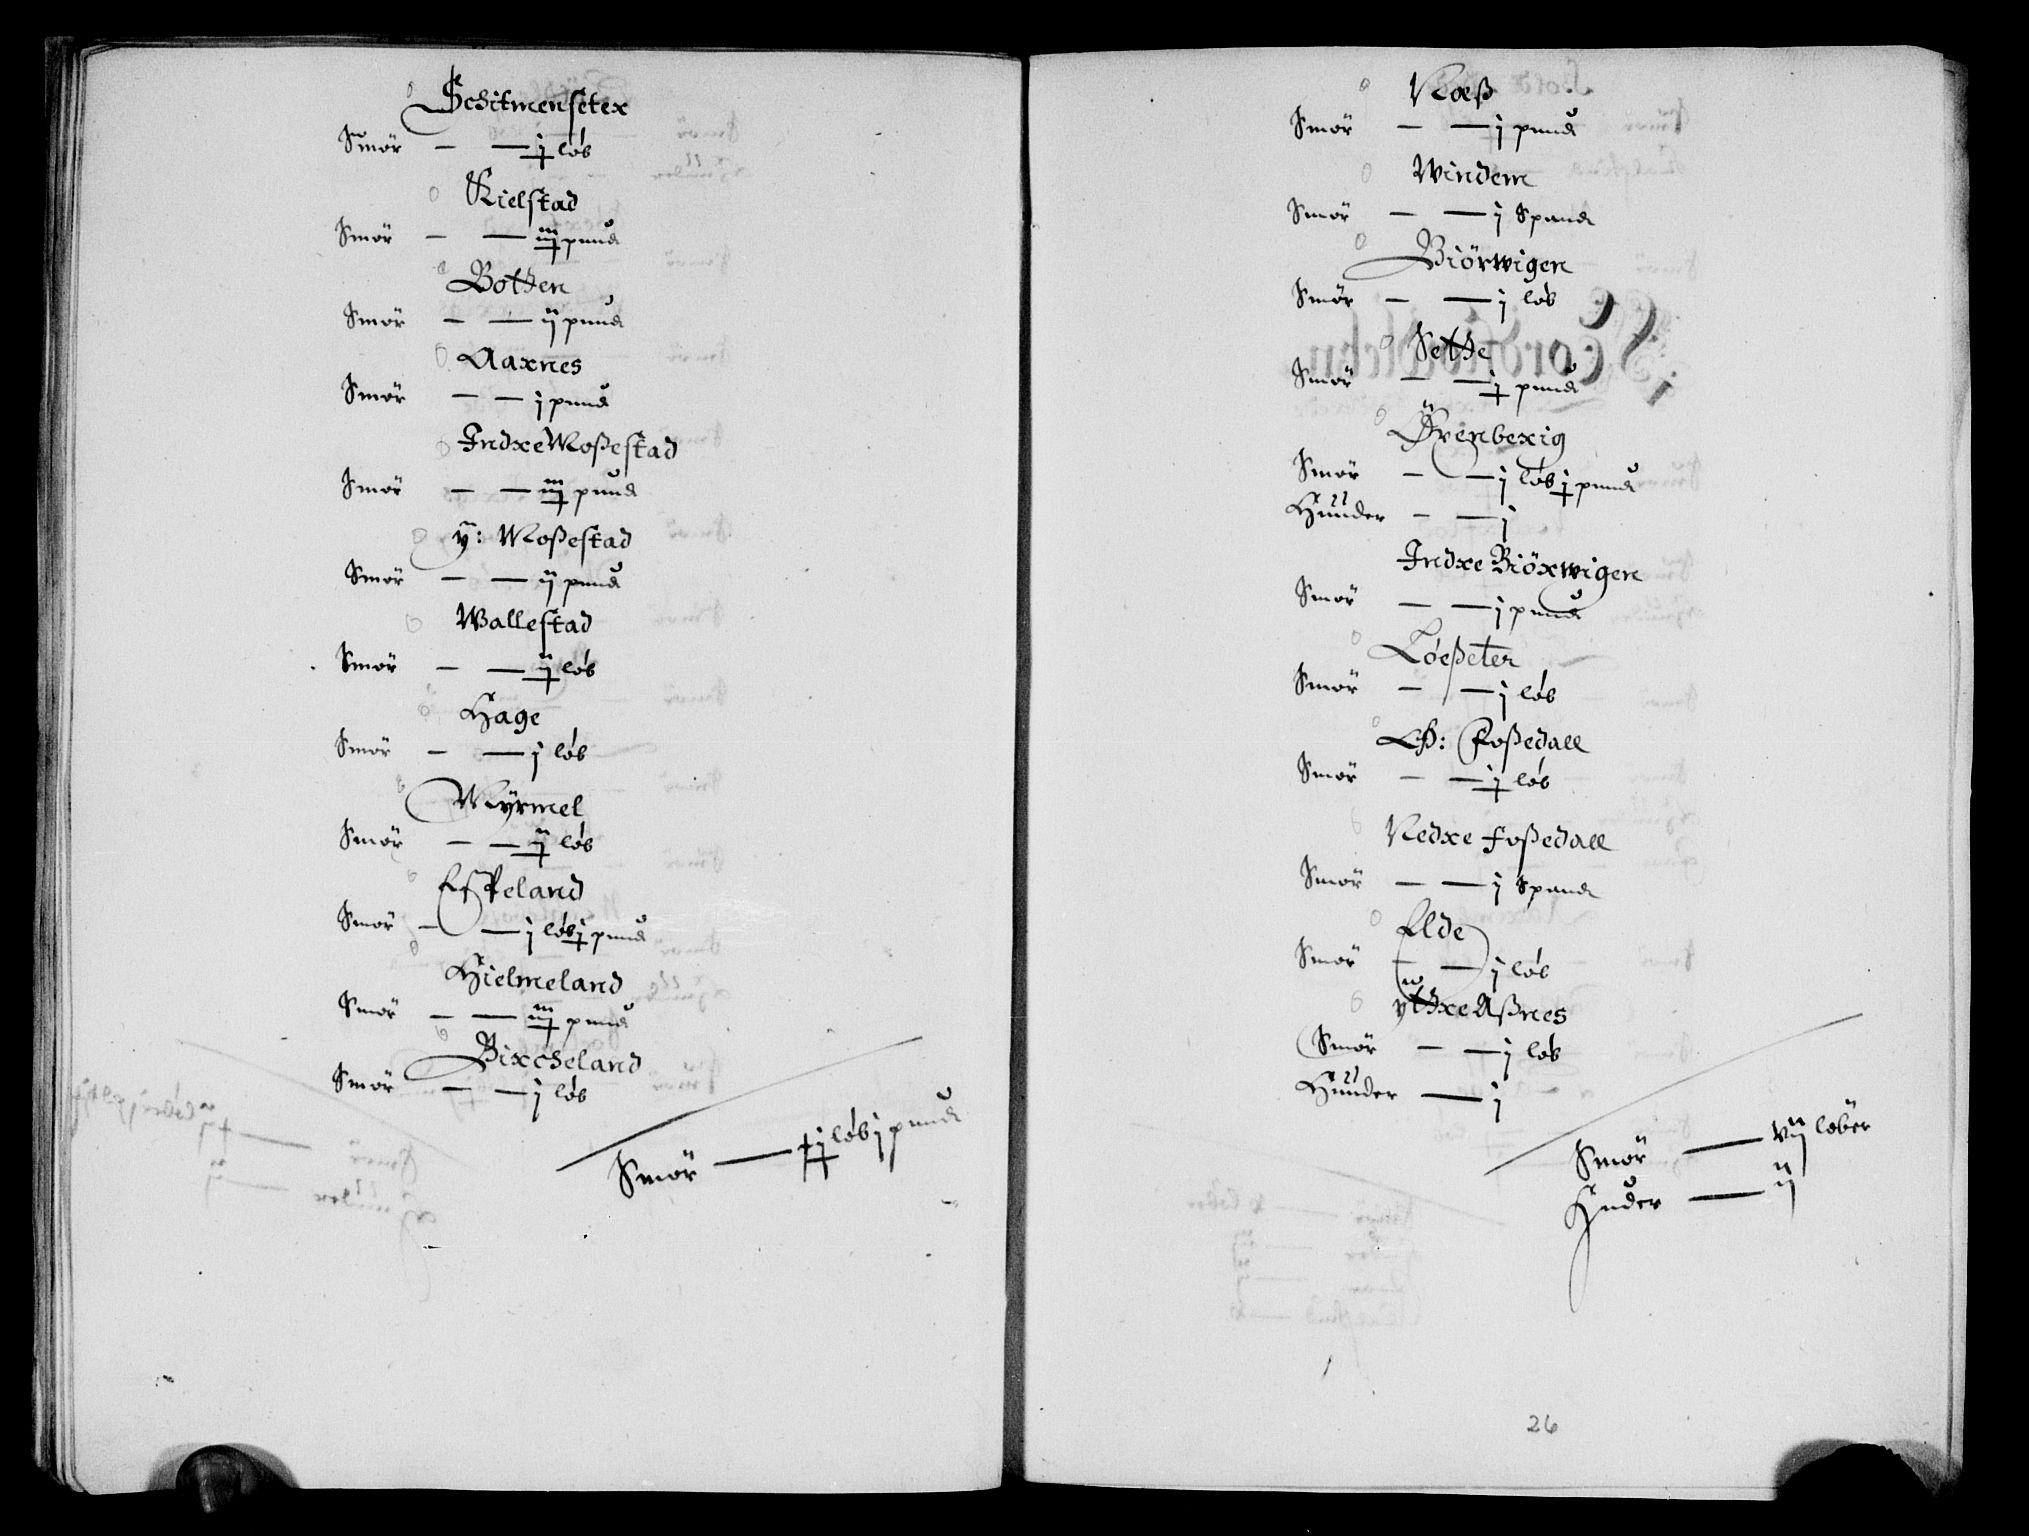 Schitmensetex
Smör — — j løb
Kielstad
Smör — — iij pund
Botthen
Smör — — ij pund
Aaxnes
Smör — — j pund
Indxe Moßestad
Smör — — iij pund
ÿ: Moßestad
Smör — — ij pund
Wallestad
Smör — — ij løb
Hage
Smör — — j løb
Mÿrmel
Smör — — ij løb
Espeland
Smör — — j løb j pund
Hielmeland
Smör — — iij pund
Bixcheland
Smör — — j løb
Smör — løb j pund
Næß
Smör — — j pund
Windem
Smör — — j Spand
Biörwigen
Smör — — j løb
Sette
Smör — — j pund
Örenbexig
Smör — — j løb j pund
Huuder — — j
Indxe Biöxwigen
Smör — — j pund
Løeßeter
Smör — — j løb
Foßedall
Smör — — j løb
Nedxe Foßedall
Smör — — j Spand
Elde
Smör — — j løb
ÿthxe Aßnes
Smör — — j løb
Huuder — j
Smör — vij løber
Huder — ij
26